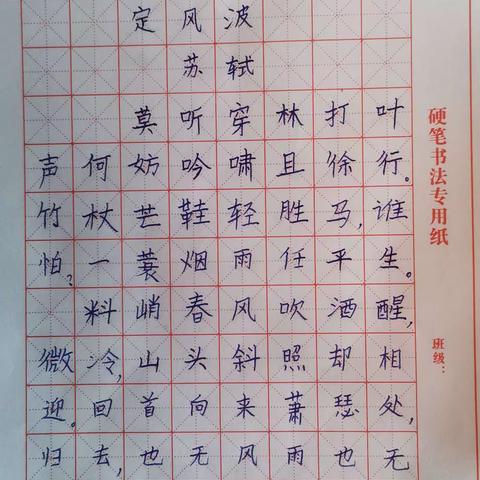 定风波
苏轼
莫听穿林打叶
声何妨吟啸且徐行。
竹杖芒鞋轻胜马,谁
怕?一蓑烟雨任平生。
料峭春风吹酒醒,
微冷,山头斜照却相
迎。回首向来萧瑟处,
归去,也无风雨也无
硬笔书法专用纸
班级: